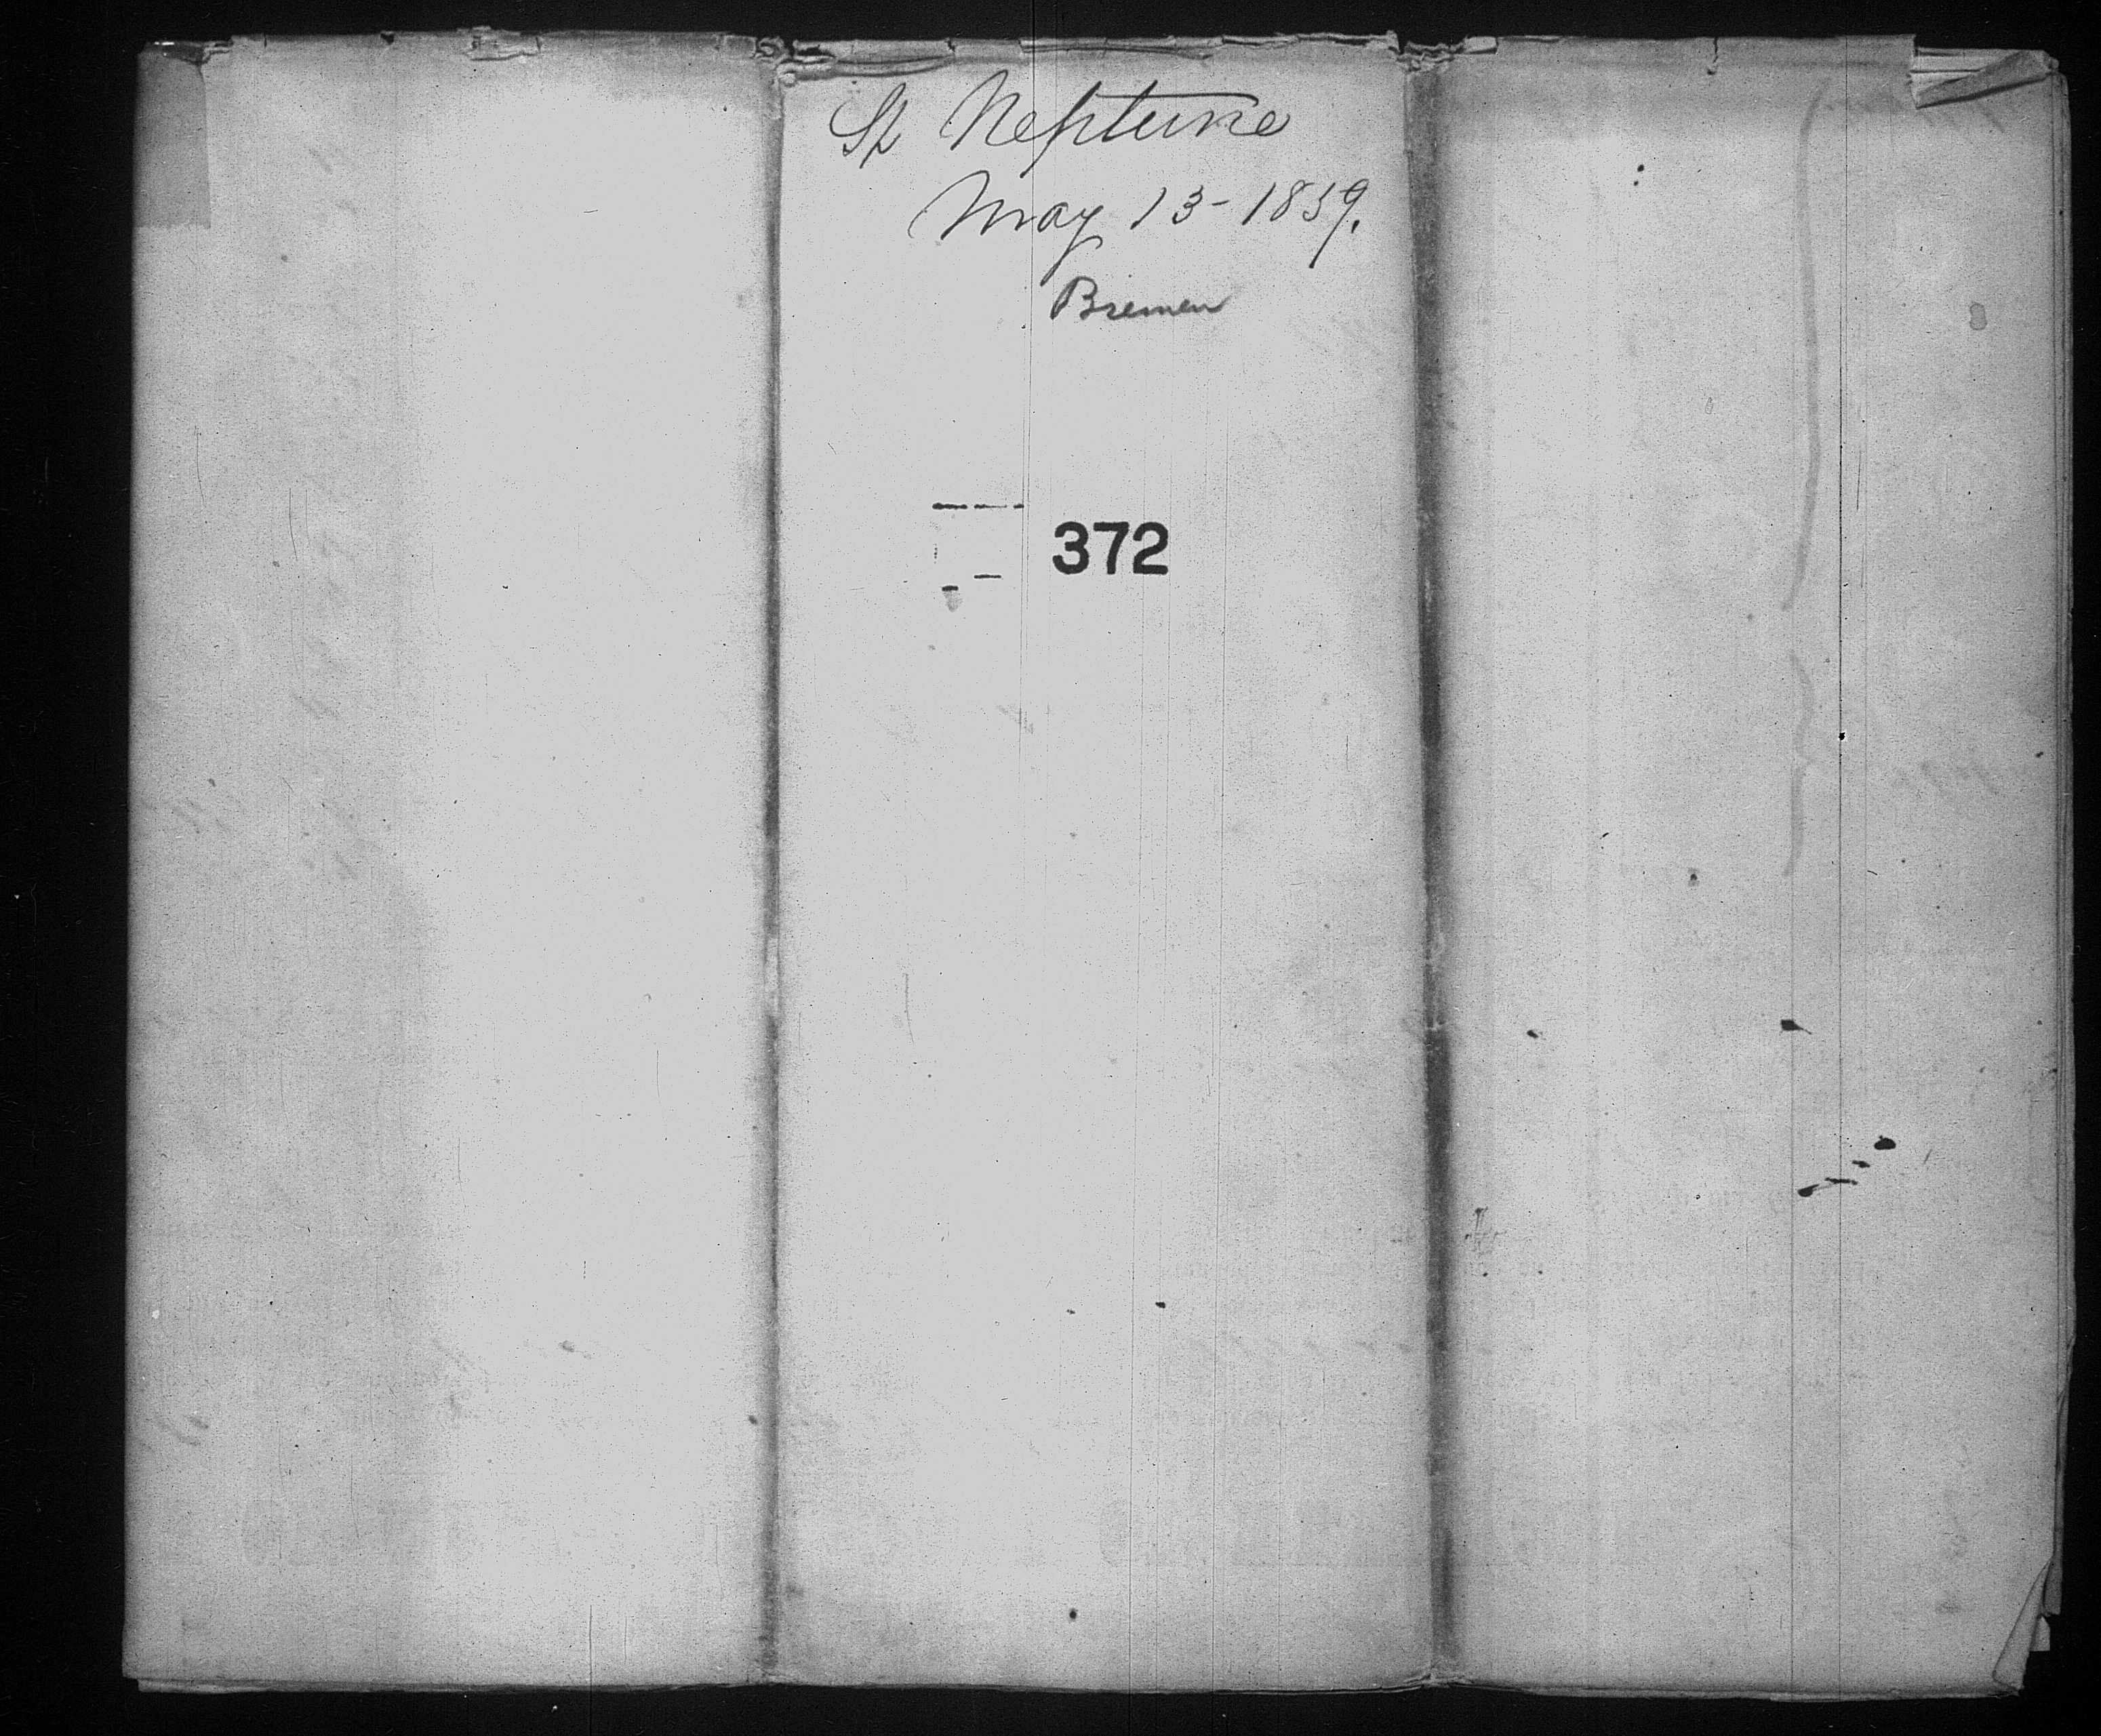 Sp Neptune
May 13 - 1859.
Bremen
372